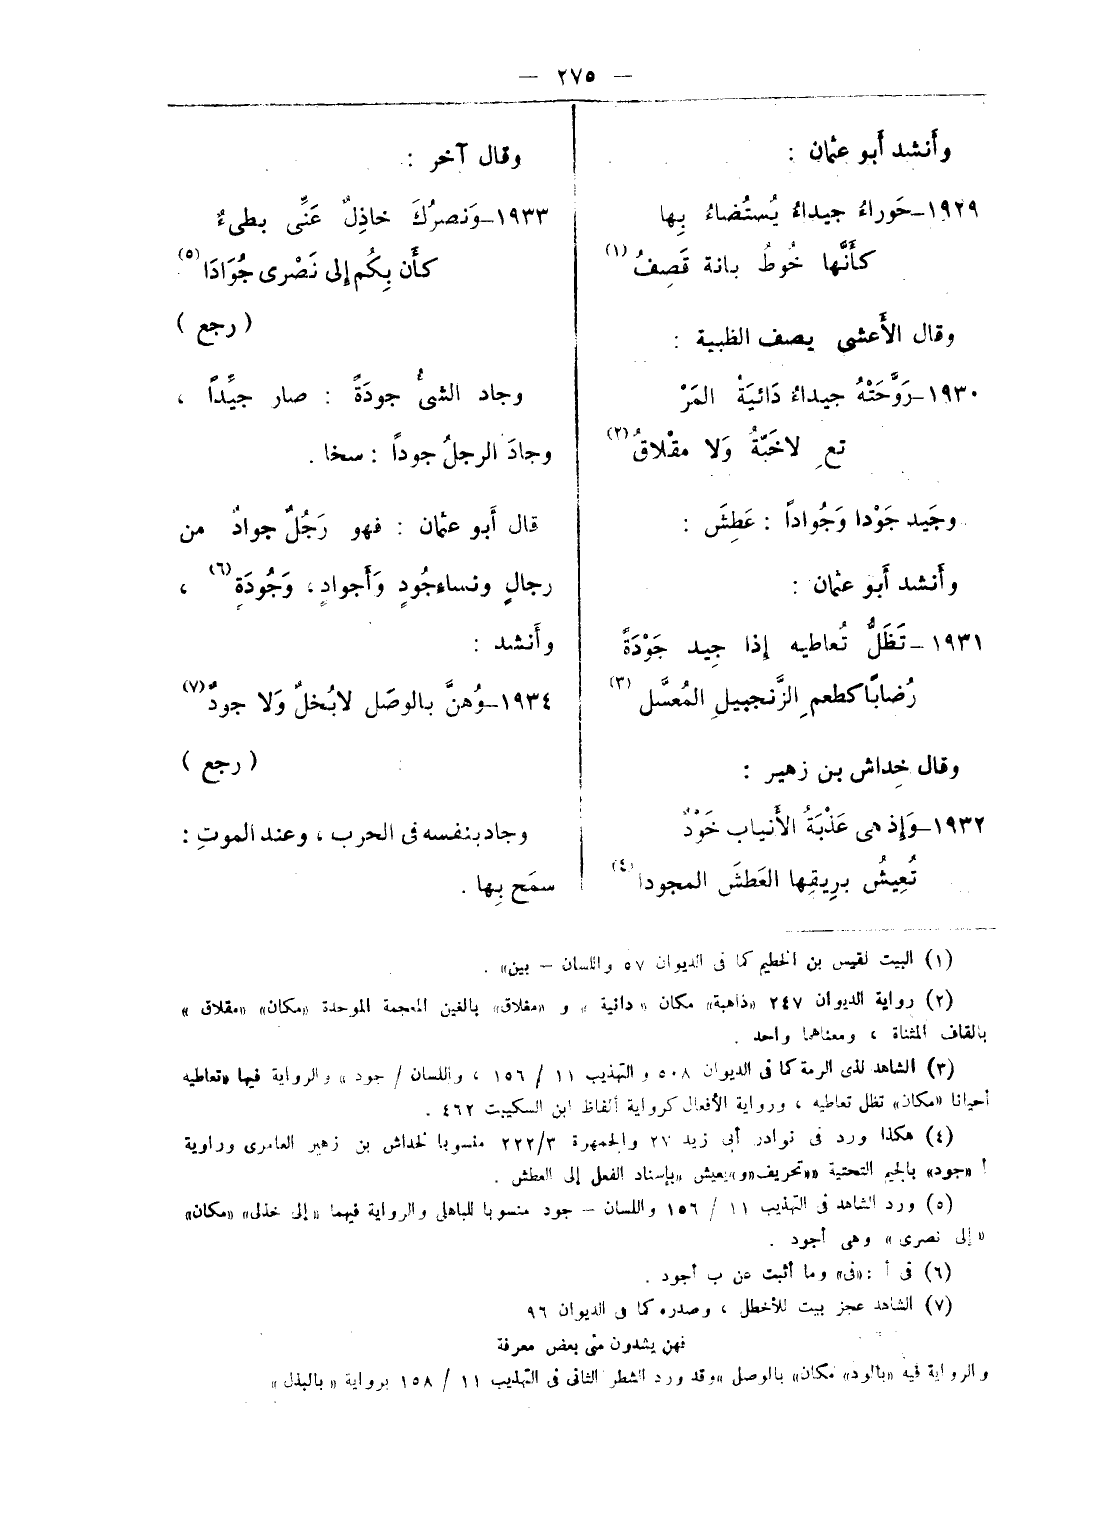 — ٢٧٥ —
وأَنشد أَبو عثمان :
١٩٢٩ـ حَوراءُ جيداءُ يُستُضاءُ بِها
كأَنَّها خُوطُ بانة قَصِفُ (١)
وقال الأَعشى يصف الظبية :
١٩٣٠ـ رَوَّحَتْهُ جيداءُ دَانيَةُ المَرْ
تع ِ لاخَبَّةٌ وَلا مقْلاقُ (٢)
وجَيد جَوْدا وَجُواداً : عَطِشَ :
وأَنشد أَبو عثمان :
١٩٣١ ـ تَظَلُّ تُعاطيه إِذا جِيد جَوْدَةً
رُضابًا كطعم ِ الزَّنجبيلِ المُعسَّل (٣)
وقال خِداش بن زهير :
١٩٣٢ـ وَإِذ هى عَذْبَةُ الأَنياب خَوْدٌ
تُعِيشُ بريِقِها العَطشَ المجودا (٤)
وقال آخر :
١٩٣٣ـ وَنصرُكَ خاذِلٌ عَنِّى بطىءٌ
كأَن بِكُم إلى نَصْرى جُوَادَا (٥)
( رجع )
وجاد الشىُٔ جودَةً : صار جيِّداً ،
وجادَ الرجلُ جوداً : سخا .
قال أَبو عثمان : فهو رَجُلٌ جوادٌ من
رجالٍ ونساءجُودٍ وَأَجوادٍ ، وَجُودَةِ (٦) ،
وأَنشد :
١٩٣٤ـ وُهنَّ بالوصَل لابُخلٌ وَلا جودٌ (٧)
( رجع )
وجاد بنفسه فى الحرب ، وعند الموتِ :
سمَح بِها .
(١) البيت لقيس بن الخطيم كما فى الديوان ٥٧ واللسان – بين» .
(٢) رواية الديوان ٢٤٧ «ذاهبة» مكان «دانية » و «مغلاق» بالغين المعجمة الموحدة «مكان» «مقلاق »
بالقاف المثناة ، ومعناهما واحد .
(٣) الشاهد لذى الرمة كما فى الديوان ٥٠٨ و التهذيب ١١ / ١٥٦ ، واللسان / جود » والرواية فيها «تعاطيه
أحيانا «مكان» تظل تعاطيه ، ورواية الأفعال كرواية ألفاظ ابن السكيت ٤٦٢ .
(٤) هكذا ورد فى نوادر أبى زيد ٢٧ والجمهرة ٢٢٢/٣ منسوبا لخداش بن زهير العامرى وراوية
أ «جود» بالجيم التحتية ««تحريف»و»يعيش «بإسناد الفعل إلى العطش .
(٥) ورد الشاهد فى التهذيب ١١ / ١٥٦ واللسان – جود منسوبا للباهلى والرواية فيهما «إلى خذلى» «مكان»
«إلى نصرى» وهى أجود .
(٦) فى أ : «فى» وما أثبت عن ب أجود .
(٧) الشاهد عجز بيت للأخطل ، وصدره كما فى الديوان ٩٦
فهن يشدون منى بعض معرفة
والرواية فيه «بالود» مكان» بالوصل »وقد ورد الشطر الثانى فى التهذيب ١١ / ١٥٨ برواية « بالبذل »